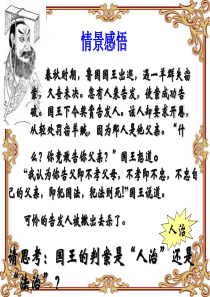 情景感悟
春秋时期，鲁国国王出巡，遇一平群夫窃
案，久查未决。忽有人来告发，使案成功告
破。国王下令奖赏告发人。该人却要求开恩，
从轻处罚当平贼，因为那人是他父亲。“什
么？你竟敢告你父亲？”国王怒道。
“我认为告父即不孝父母，不孝即不忠，不忠自
己的父亲，即犯国法，犯法则死！”国王说道。
可怜的告发人被掀出去杀了。
人治
请思考：国王的判案是“人治”还是
“法治”？